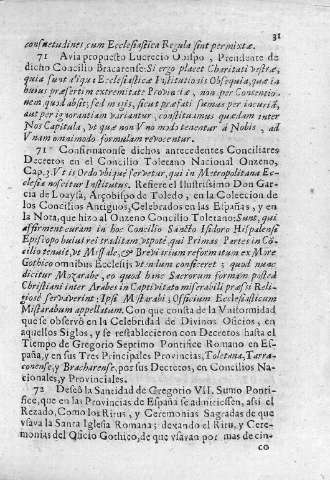 31
consuetudines cum Ecclesiastica Regula sint permixtæ.
71 Avia propuesto Lucrecio Obispo, Presidente de
dicho Concilio Bracarense: Si ergo placet Charitati vestræ,
quia sunt aliqui Ecclesiasticæ Institutionis Obsequia, quæ in
huius præsertim extremitate Provinciæ, non per Contentio-
nem quod absit; sed magis, sicut præfati sumus per incuriã,
aut per ignorantiam variantur, constituamus quædam inter
Nos Capitula, vt quæ non Vno modo tenentur à Nobis, ad
Vnam omnimodo formulam revocentur.
71 Confirmaronse dichos antecedentes Conciliares
Decretos en el Concilio Toletano Nacional Onzeno,
Cap. 3. Vt is Ordo vbique servetur, qui in Metropolitana Ec-
clesia noscitur Institutus. Refiere el Ilustrissimo Don Gar-
cia de Loaysa, Arçobispo de Toledo, en la Coleccion de
los Concilios Antiguos, Celebrados en las Españas, y en
la Nota, que hizo al Onzeno Concilio Toletano: Sunt, qui
affirment curam in hoc Concilio Sancto Isidoro Hispalensi
Episcopo huius rei traditam vtpotè, qui Primas Partes in Cõ-
cilio tenuit, vt Missale, & Breviarium reformatum ex More
Gothico omnibus Ecclesijs vt milem conficeret; quod nunc
dicitur Mozarabe, eo quod hanc Sacrorum formam posteà
Christiani inter Arabes in Captivitate miserabili præsi Reli-
giosè servaverint: Ipsi Mistarabi, Officium Ecclesiasticum
Mistarabum appellatum. Con que consta de la Vniformidad
que se observò en la Celebridad de Divinos Oficios, en
aquellos Siglos, y se restablecieron con Decretos hasta el
Tiempo de Gregorio Septimo Pontifice Romano en Es-
paña, y en sus Tres Principales Provincias, Toletana, Tarra-
conense, y Bracharense, por sus Decretos, en Concilios Na-
cionales, y Provinciales.
72 Deseò la Santidad de Gregorio VII. Sumo Ponti-
fice, que en las Provincias de España se admitiessen, assi el
Rezado, Como los Ritus, y Ceremonias Sagradas de que
vsava la Santa Iglesia Romana; dexando el Ritu, y Cere-
monias del Oficio Gothico, de que vsavan por mas de cin-
co